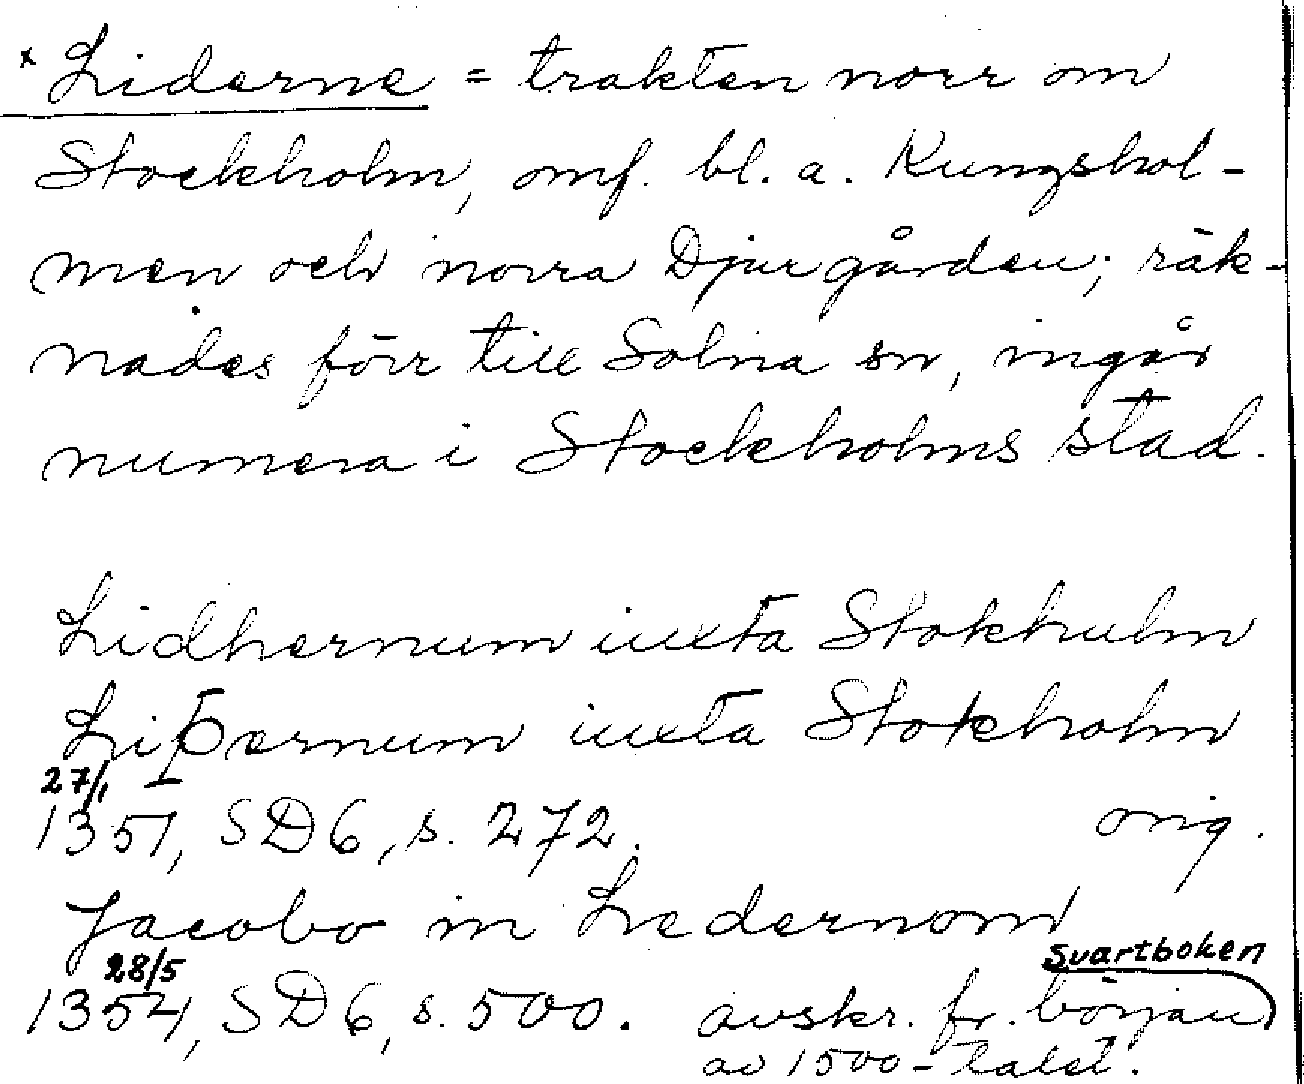 * Liderne = trakten norr om
Stockholm, omf. bl. a. Kungshol-
men och norra Djurgården; räk-
nades förr till Solna sn, ingår
numera i Stockholms stad.
Lidhernum iuxta Stokhulm
Liþernum iuxta Stokholm
27/1
1351, SD6, s. 272. orig.
Jacobo in Ledernom
28/5 Svartboken
1354, SD6, s. 500. avskr. fr. början
av 1500-talet.